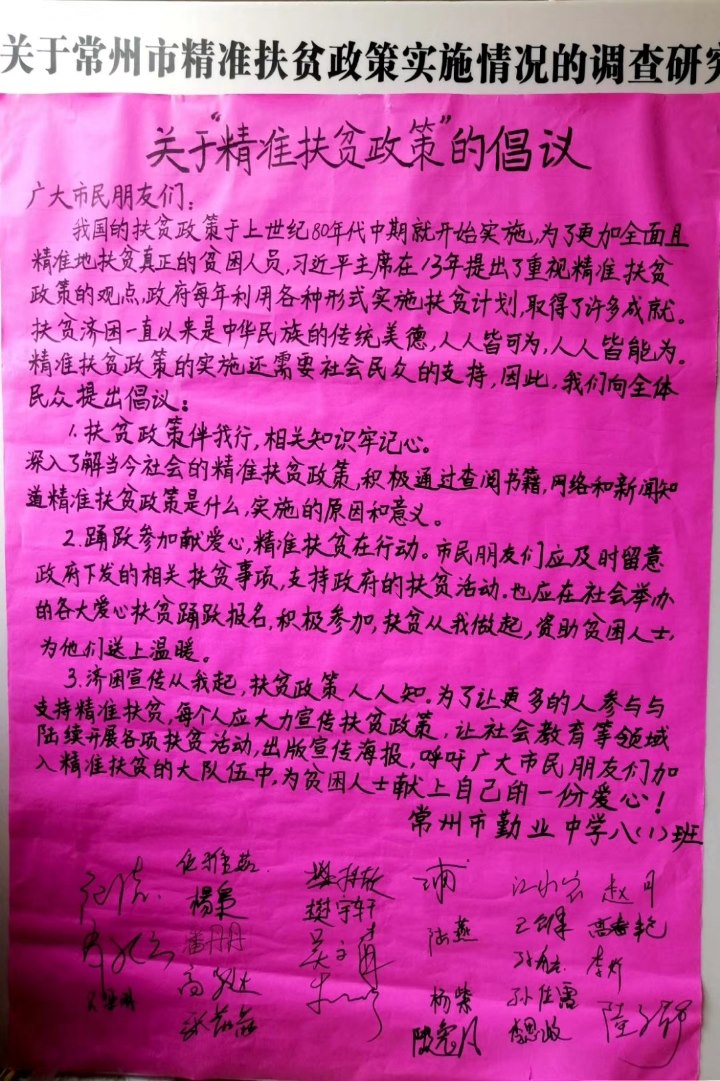 关于常州市精准扶贫政策实施情况的调查研究
关于“精准扶贫政策”的倡议
广大市民朋友们：
我国的扶贫政策于上世纪80年代中期就开始实施，为了更加全面且
精准地扶贫真正的贫困人员，习近平主席在13年提出了重视精准扶贫
政策的观点，政府每年利用各种形式实施扶贫计划，取得了许多成就。
扶贫济困一直以来是中华民族的传统美德，人人皆可为，人人皆能为。
精准扶贫政策的实施还需要社会民众的支持，因此，我们向全体
民众提出倡议：
1.扶贫政策伴我行，相关知识牢记心。
深入了解当今社会的精准扶贫政策，积极通过查阅书籍，网络和新闻知
道精准扶贫政策是什么，实施的原因和意义。
2.踊跃参加献爱心，精准扶贫在行动。市民朋友们应及时留意
政府下发的相关扶贫事项，支持政府的扶贫活动。也应在社会举办
的各大爱心扶贫踊跃报名，积极参加，扶贫从我做起，资助贫困人士，
为他们送上温暖。
3.济困宣传从我起，扶贫政策人人知。为了让更多的人参与与
支持精准扶贫，每个人应大力宣传扶贫政策，让社会教育等领域
陆续开展各项扶贫活动，出版宣传海报，呼吁广大市民朋友们加
入精准扶贫的大队伍中，为贫困人士献上自己的一份爱心！
常州市勤业中学八（1）班
赵月
樊宇轩
潘丹丹
陆燕
杨柴
孙佳露